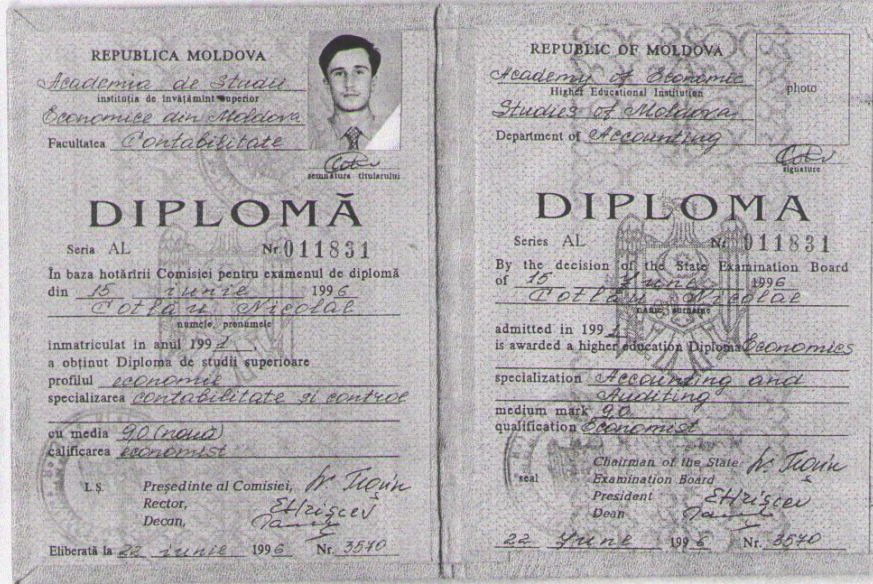 REPUBLICA MOLDOVA
Academia de Studii
instituția de învățămînt superior
Economice din Moldova
Facultatea Contabilitate
semnătura titularului
DIPLOMĂ
Seria AL Nr 011831
În baza hotărîrii Comisiei pentru examenul de diplomă
din 15 iunie 1996
Cotlău Nicolae
numele, pronumele
inmatriculat in anul 1991
a obținut Diploma de studii superioare
profilul economie
specializarea contabilitate si control
cu media 9,0 (nouă)
calificarea economist
L.Ș. Președinte al Comisiei,
Rector,
Decan,
Eliberată la 22 iunie 1996 Nr. 3570
REPUBLIC OF MOLDOVA
Academy of Economic
Higher Educational Institution
Studies of Moldova
Department of Accounting
photo
signature
DIPLOMA
Series AL Nr 011831
By the decision of the State Examination Board
of 15 June 1996
Cotlău Nicolae
name, surname
admitted in 1991
is awarded a higher education Diploma Economics
specialization Accounting and
Auditing
medium mark 9,0
qualification Economist
seal
Chairman of the State
Examination Board
President
Dean
22 June 1996 Nr. 3570